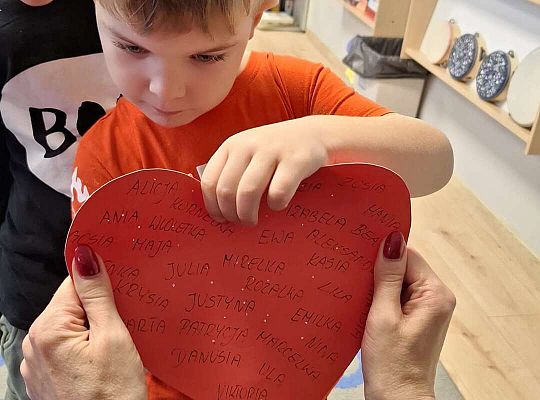 BO
ALICJA ZOSIA
KORNELIA HANIA
ANIA WIOLETKA IZABELA
ZOSIA MAJA EWA ALEKSANDRA
JULIA MIRELKA KASIA
KRYSIA ROZALKA LILA
JUSTYNA EMILKA
MARTA PATRYCJA MARCELKA NINA
DANUSIA ULA
WIKTORIA